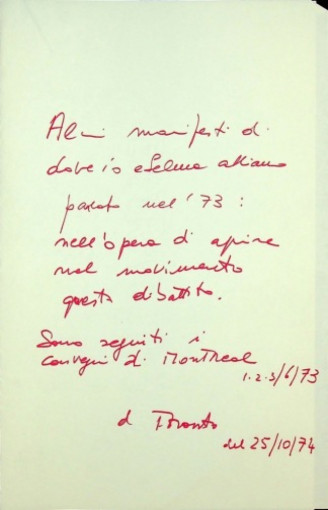 Alcuni manifesti di
dove io e Selma abbiamo
parlato nel '73:
nell'opera di aprire
nel movimento
questo dibattito.
Sono seguiti i
convegni di Montreal
1-2-3/6/73
di Toronto
del 25/10/74